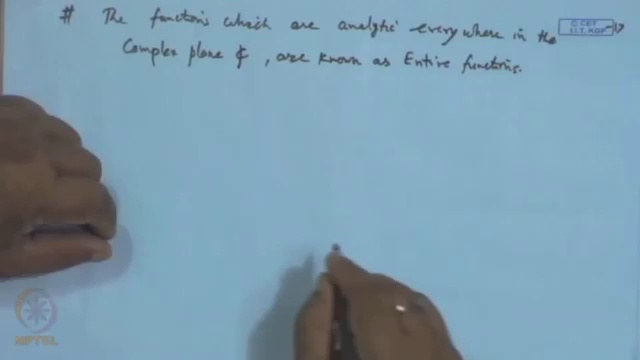 # The functions which are analytic everywhere in the
Complex plane ₵, are known as Entire functions.
© CET
I.I.T. KGP
NPTEL